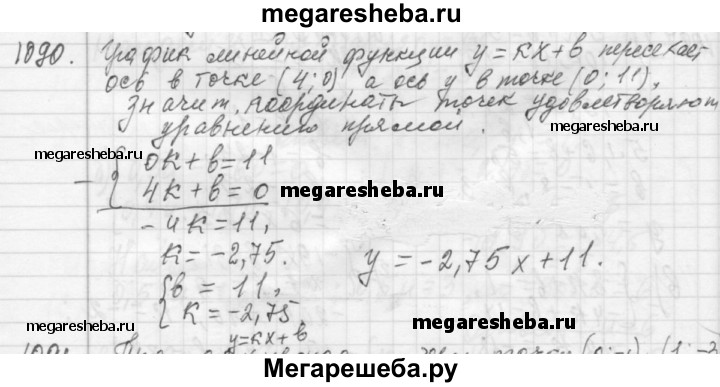 megaresheba.ru
1090. График линейной функции y=кx+в пересекает
ось в точке (4;0) а ось y в точке (0; 11),
значит, координаты точек удовлетворяют
уравнению прямой.
megaresheba.ru
0к+в=11
- { 4к+в=0
megaresheba.ru
-4к=11,
к=-2,75.
y=-2,75x+11.
{ в=11,
к=-2,75.
y=кx+в
megaresheba.ru
Мегарешеба.ру